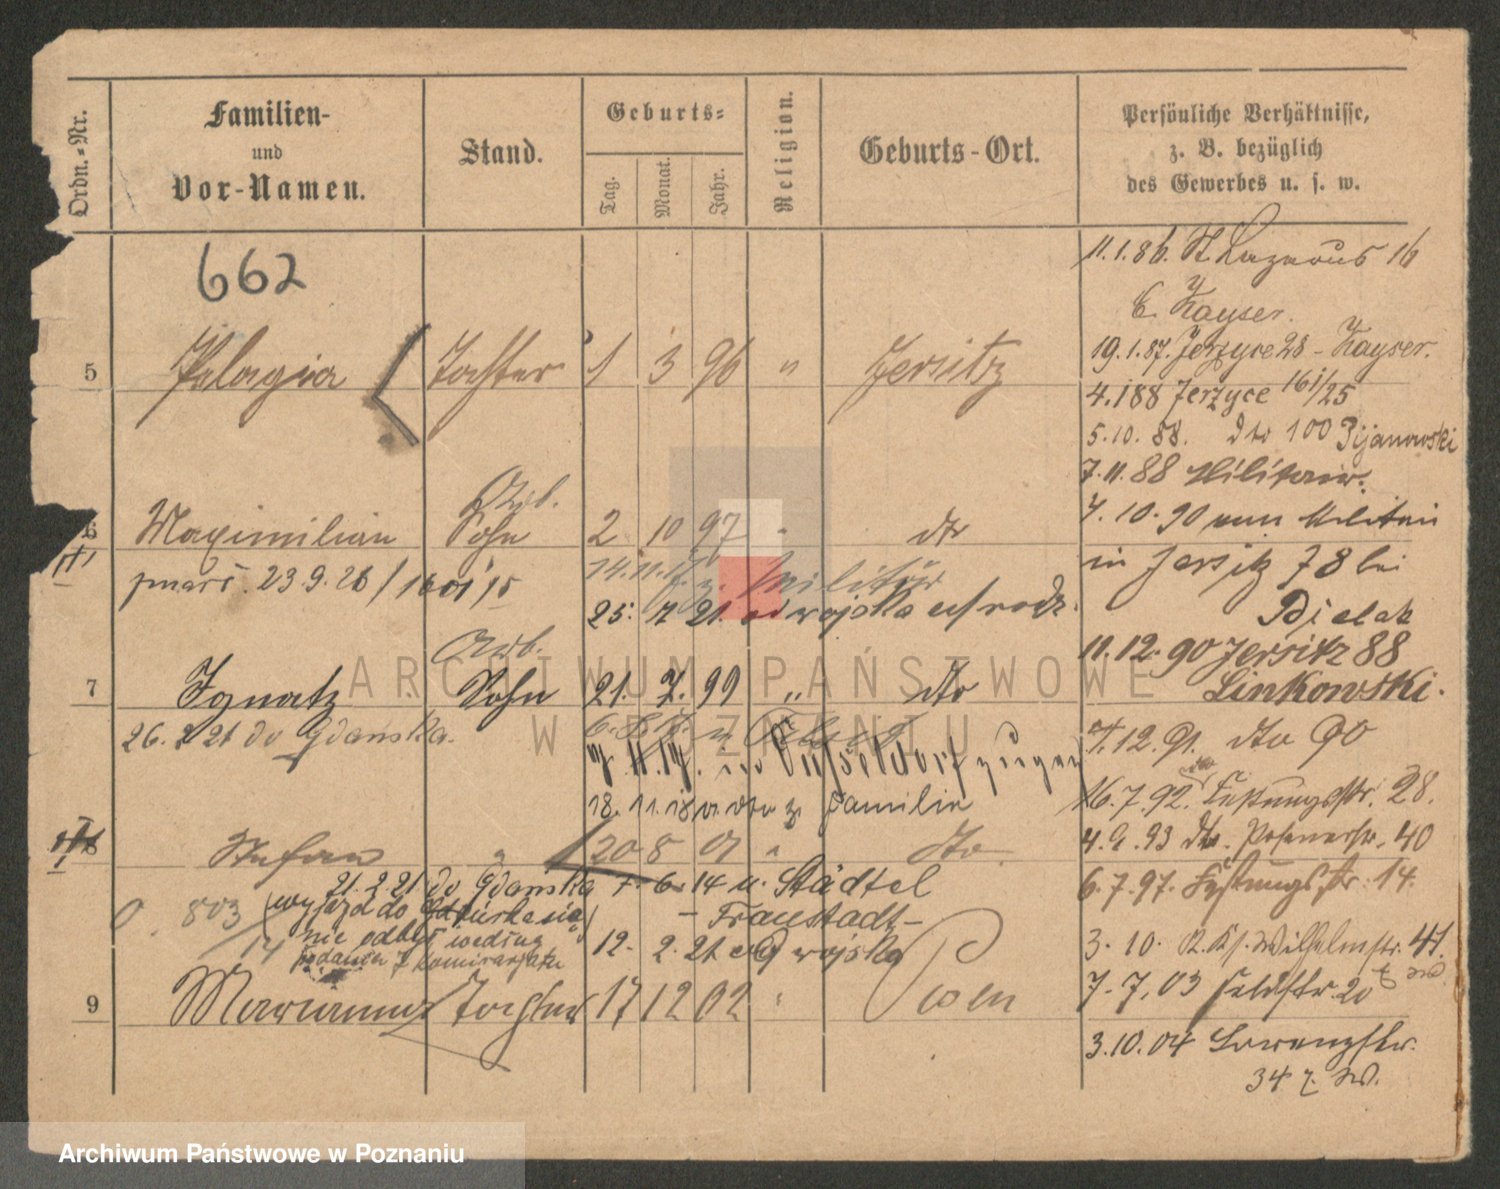 Ordn.-Nr.
Familien-
und
Vor-Namen.
Stand.
Geburts-
Tag.
Monat.
Jahr.
Religion.
Geburts-Ort.
Persönliche Verhältnisse,
z. B. bezüglich
des Gewerbes u. s. w.
662
11.1.86. St Lazarus 16
b. Kayser.
19.1.87. Jerzyce 28 - Kayser.
5 Pelagia Tochter 1 3 96 " Jersitz
4.1 88 Jerzyce 161/25
5.10.88. dto 100 Pijanowski
7.11.88 Militair.
Arb.
6 Maximilian Sohn 2 10 97 " dto
7.10.90 vom Militair
in Jersitz 78 bei
zmarł. 23.9.26 / 1601/15
14.11.17 z. Militär
25. 7 21. od wojska
Bjelak
11.12.90 Jersitz 88
Linkowski.
Arb.
7 Ignatz Sohn 21. 7. 99 " dto
26. 2 21 do Gdańska.
7.12.91. dto 90
in Düsseldorf zugez
16.7.92. Festungsstr. 28.
18. 11. 18 z Familie
4.9.93 dto. Posenerstr. 40
8 Stefan " 20 8 01 " dto.
21.2.21 do Gdańska
7. 6. 14 u. Städtel
- Fraustadt -
6.7.97. Festungsstr. 14.
0. 803
14
wyjazd do
nie odbył według
podania komisarjatu
12. 2. 21 od wojska
3. 10. Wilhelmstr. 41.
9 Marianna Tochter 17 12 02 " Posen
7.7.03 Feldstr. 20
3.10.04 Lorenzstr.
34 z. W.
ARCHIWUM PAŃSTWOWE
W POZNANIU
Archiwum Państwowe w Poznaniu